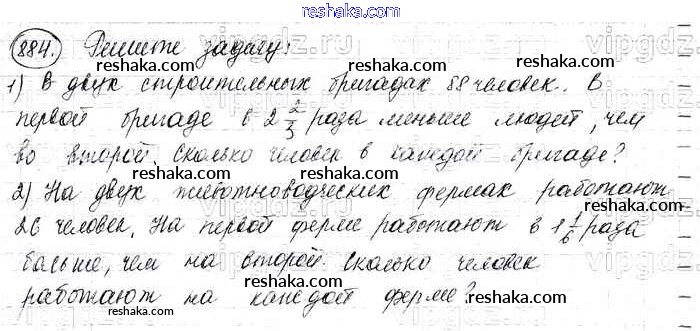 reshaka.com
884. Решите задачу:
1) В двух строительных бригадах 88 человек. В
первой бригаде в 2 2/3 раза меньше людей, чем
во второй. Сколько человек в каждой бригаде?
2) На двух животноводческих фермах работают
26 человек. На первой ферме работают в 1 1/6 раза
больше, чем на второй. Сколько человек
работают на каждой ферме?
reshaka.com